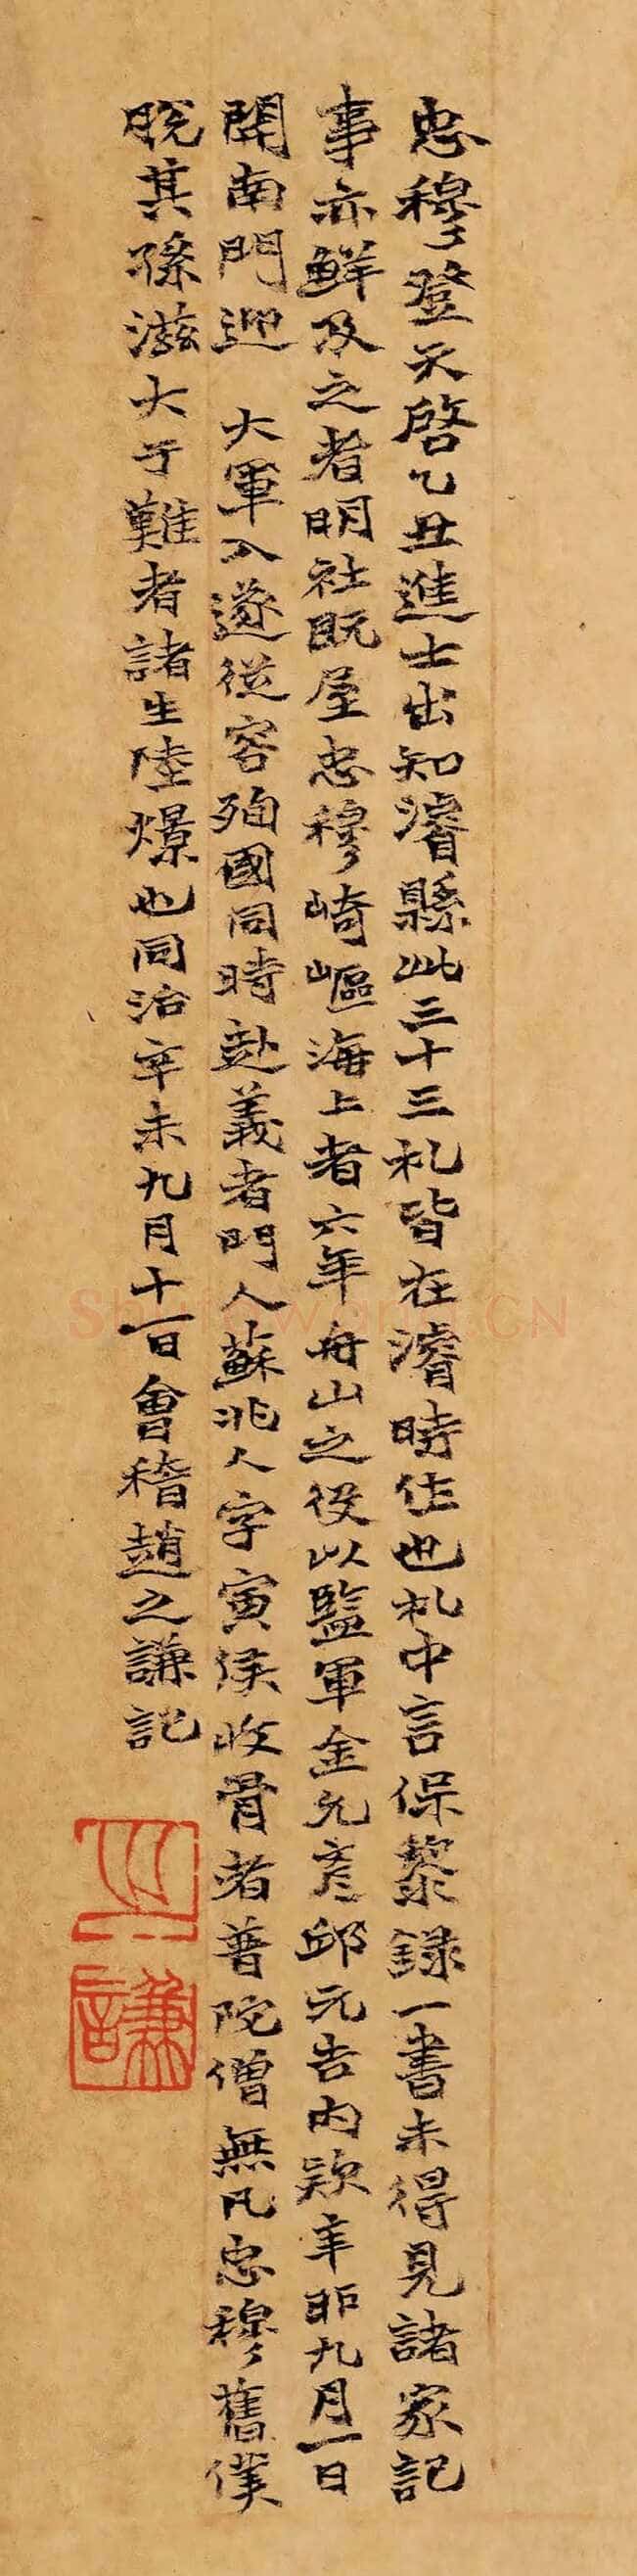 忠穆登天啓乙丑進士出知濬縣此三十三札皆在濬時作也札中言保黎錄一書未得見諸家記
事亦鮮及之者明社既屋忠穆崎嶇海上者六年舟山之役以監軍金允彥邱元吉內款辛卯九月一日
開南門迎 大軍入遂從容殉國同時赴義者門人蘇兆人字寅侯收骨者普陀僧無凡忠穆舊僕
脫其孫滋大于難者諸生陸㬌也同治辛未九月十一日會稽趙之謙記
之謙